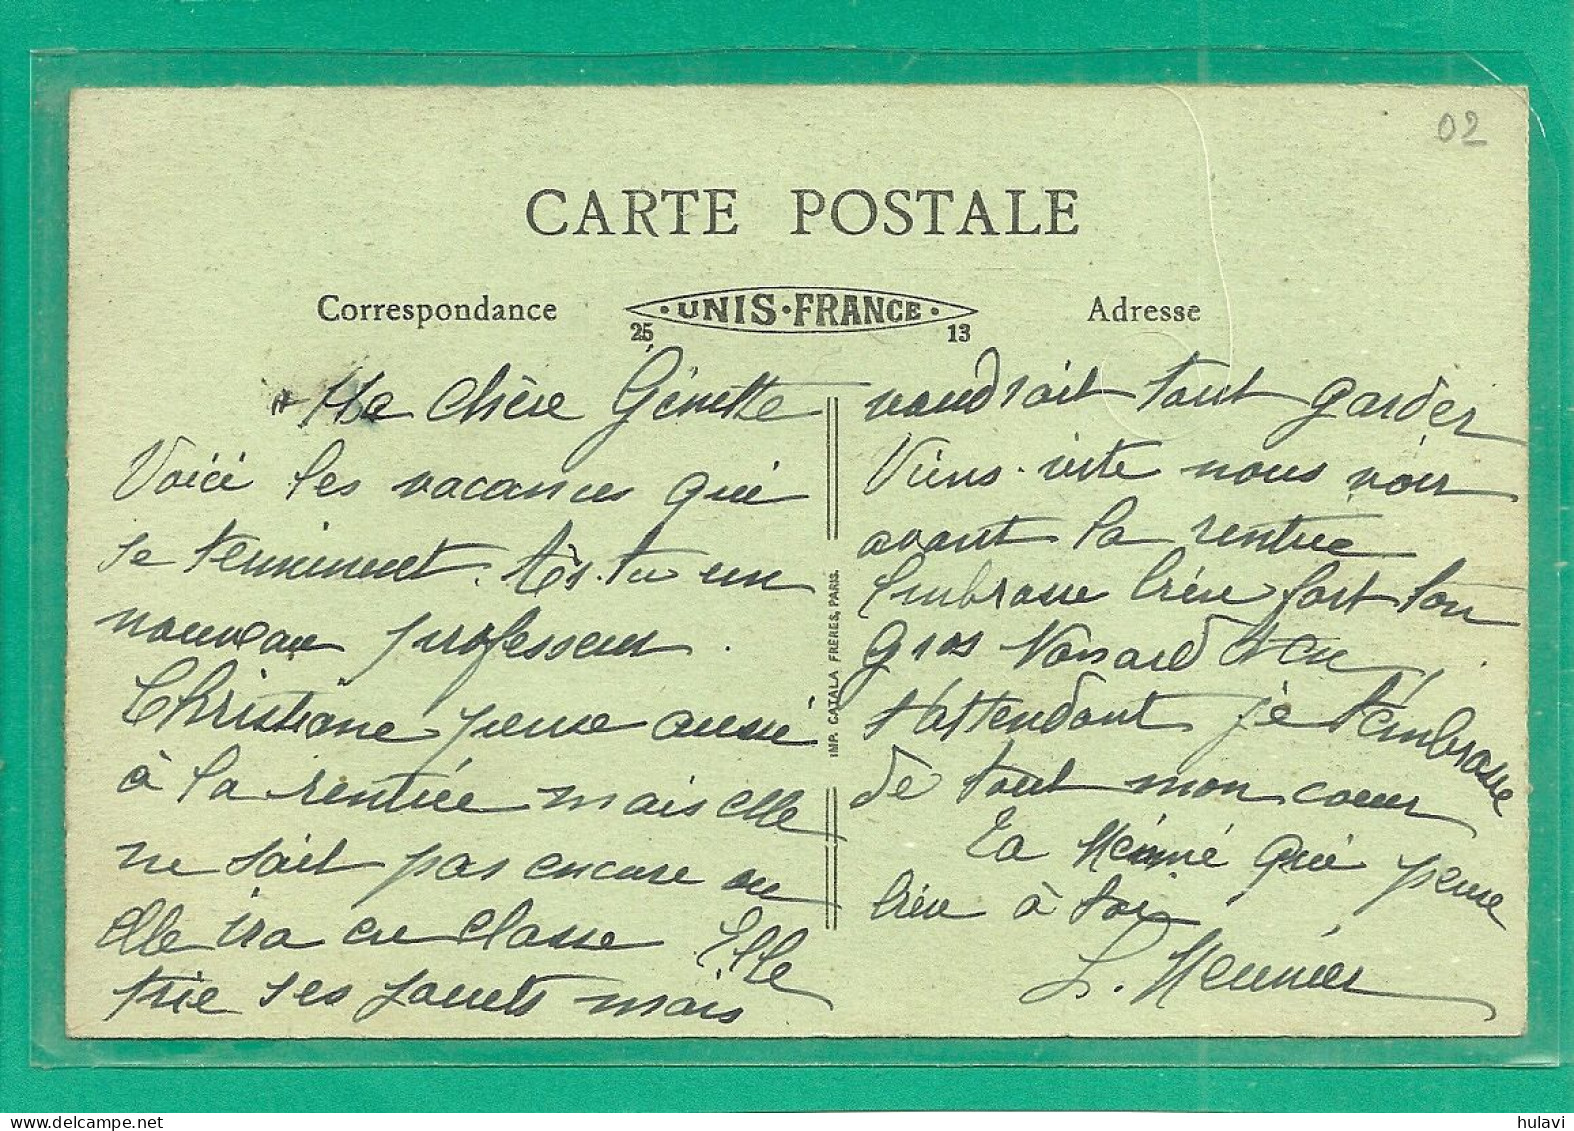 02
CARTE POSTALE
Correspondance
UNIS-FRANCE
25 13
Adresse
Ma Chère Ginette
Voici les vacances qui
se terminent. As-tu un
nouveau professeur.
Christiane pense aussi
à la rentrée mais elle
ne sait pas encore ou
elle ira en classe Elle
trie ses jouets mais
IMP. CATALA FRÈRES, PARIS.
voudrait tout garder
Viens vite nous voir
avant la rentrée
Embrasse bien fort ton
gros et en
t'attendant je t'embrasse
de tout mon coeur
Ta Mémé qui pense
bien à toi
L. Meunier
hulavi